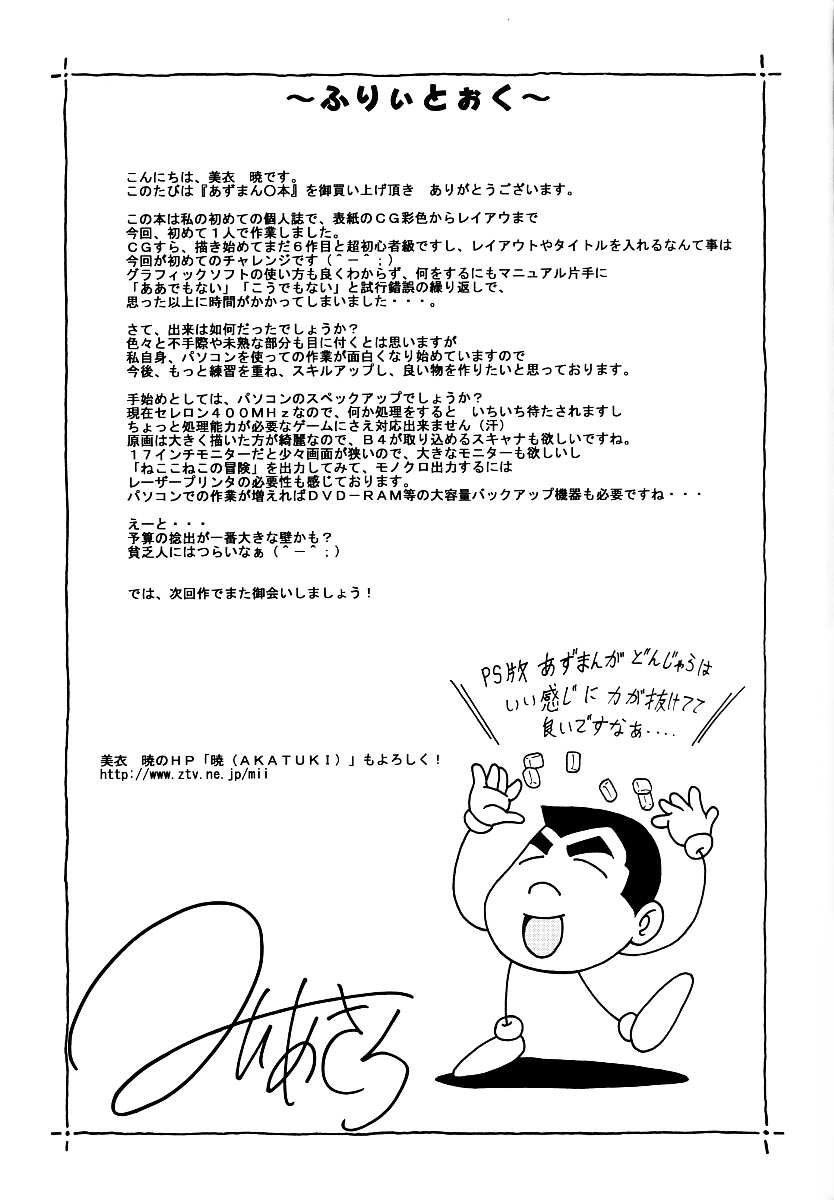 ～ふりぃとぉく～
こんにちは、美衣　暁です。
このたびは『あずまん〇本』を御買い上げ頂き　ありがとうございます。
この本は私の初めての個人誌で、表紙のＣＧ彩色からレイアウまで
今回、初めて１人で作業しました。
ＣＧすら、描き始めてまだ６作目と超初心者級ですし、レイアウトやタイトルを入れるなんて事は
今回が初めてのチャレンジです（＾－＾；）
グラフィックソフトの使い方も良くわからず、何をするにもマニュアル片手に
「ああでもない」「こうでもない」と試行錯誤の繰り返しで、
思った以上に時間がかかってしまいました・・・。
さて、出来は如何だったでしょうか？
色々と不手際や未熟な部分も目に付くとは思いますが
私自身、パソコンを使っての作業が面白くなり始めていますので
今後、もっと練習を重ね、スキルアップし、良い物を作りたいと思っております。
手始めとしては、パソコンのスペックアップでしょうか？
現在セレロン４００ＭＨｚなので、何か処理をすると　いちいち待たされますし
ちょっと処理能力が必要なゲームにさえ対応出来ません（汗）
原画は大きく描いた方が綺麗なので、Ｂ４が取り込めるスキャナも欲しいですね。
１７インチモニターだと少々画面が狭いので、大きなモニターも欲しいし
「ねここねこの冒険」を出力してみて、モノクロ出力するには
レーザープリンタの必要性も感じております。
パソコンでの作業が増えればＤＶＤ－ＲＡＭ等の大容量バックアップ機器も必要ですね・・・
えーと・・・
予算の捻出が一番大きな壁かも？
貧乏人にはつらいなぁ（＾－＾；）
では、次回作でまた御会いしましょう！
PS版 あずまんが どんじゃらは
いい感じに 力が抜けてて
良いですなぁ‥‥
美衣　暁のＨＰ「暁（ＡＫＡＴＵＫＩ）」もよろしく！
http://www.ztv.ne.jp/mii